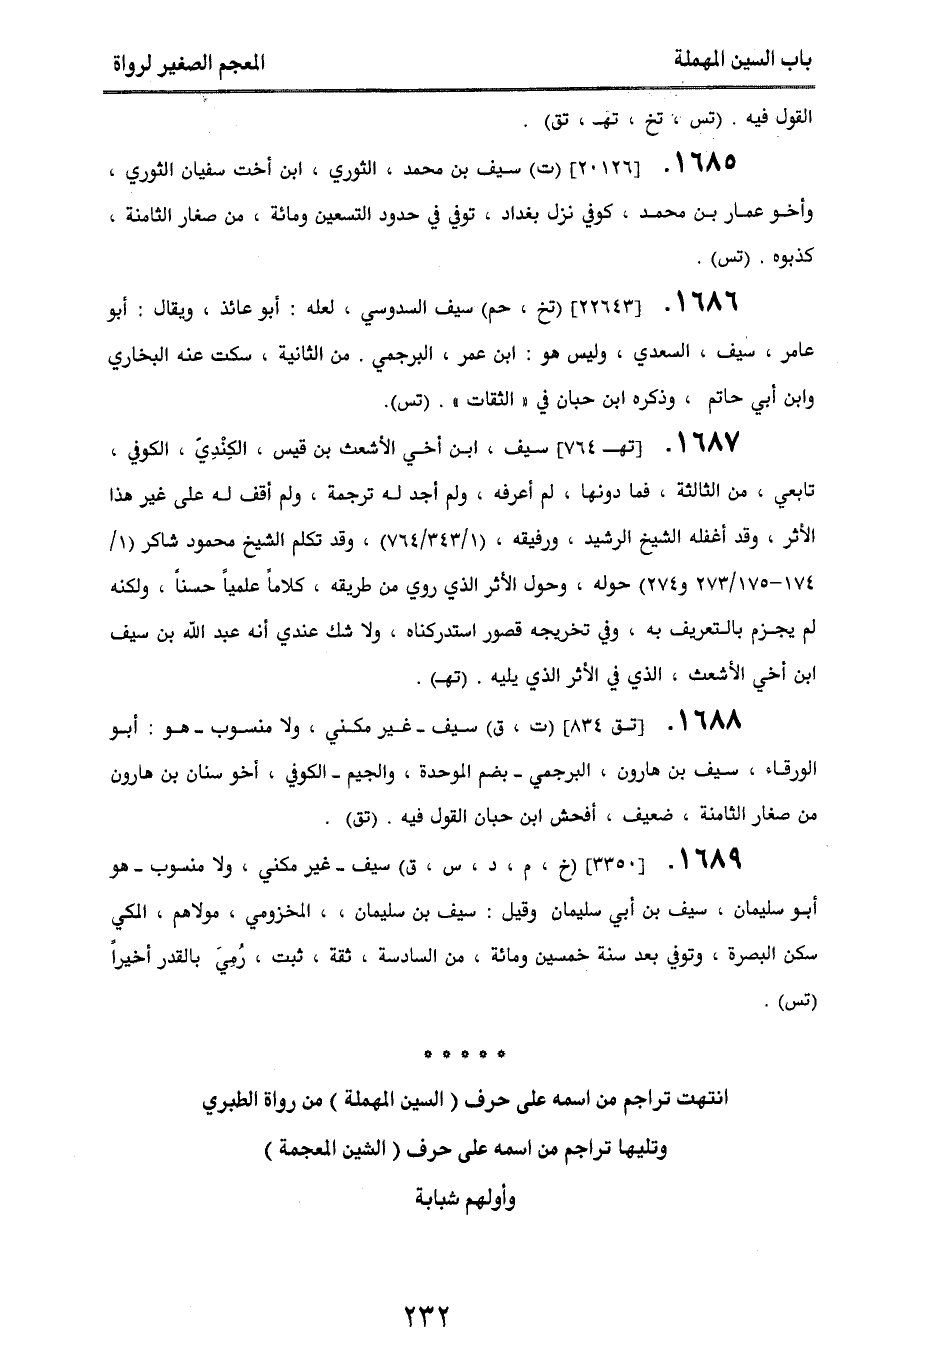 باب السين المهملة
المعجم الصغير لرواة
القول فيه . (تس ، تخ ، تهـ ، تق) .
١٦٨٥. [٢٠١٢٦] (ت) سيف بن محمد ، الثوري ، ابن أخت سفيان الثوري ،
وأخو عمار بن محمد ، كوفي نزل بغداد ، توفي في حدود التسعين ومائة ، من صغار الثامنة ،
كذبوه . (تس) .
١٦٨٦. [٢٢٦٤٣] (تخ ، حم) سيف السدوسي ، لعله : أبو عائذ ، ويقال : أبو
عامر ، سيف ، السعدي ، وليس هو : ابن عمر ، البرجمي . من الثانية ، سكت عنه البخاري
وابن أبي حاتم ، وذكره ابن حبان في « الثقات » . (تس).
١٦٨٧. [تهـ ٧٦٤] سيف ، ابن أخي الأشعث بن قيس ، الكِنْدِيّ ، الكوفي ،
تابعي ، من الثالثة ، فما دونها ، لم أعرفه ، ولم أجد له ترجمة ، ولم أقف له على غير هذا
الأثر ، وقد أغفله الشيخ الرشيد ، ورفيقه ، (٧٦٤/٣٤٣/١) ، وقد تكلم الشيخ محمود شاكر (١/
١٧٤-٢٧٣/١٧٥ و٢٧٤) حوله ، وحول الأثر الذي روي من طريقه ، كلاماً علمياً حسناً ، ولكنه
لم يجزم بالتعريف به ، وفي تخريجه قصور استدركناه ، ولا شك عندي أنه عبد الله بن سيف
ابن أخي الأشعث ، الذي في الأثر الذي يليه . (تهـ) .
١٦٨٨. [تق ٨٣٤] (ت ، ق) سيف ـ غير مكني ، ولا منسوب ـ هو : أبو
الورقاء ، سيف بن هارون ، البرجمي ـ بضم الموحدة ، والجيم ـ الكوفي ، أخو سنان بن هارون
من صغار الثامنة ، ضعيف ، أفحش ابن حبان القول فيه . (تق) .
١٦٨٩. [٣٣٥٠] (خ ، م ، د ، س ، ق) سيف ـ غير مكني ، ولا منسوب ـ هو
أبو سليمان ، سيف بن أبي سليمان وقيل : سيف بن سليمان ، ، المخزومي ، مولاهم ، المكي
سكن البصرة ، وتوفي بعد سنة خمسين ومائة ، من السادسة ، ثقة ، ثبت ، رُمِيَ بالقدر أخيراً
(تس) .
* * * * *
انتهت تراجم من اسمه على حرف ( السين المهملة ) من رواة الطبري
وتليها تراجم من اسمه على حرف ( الشين المعجمة )
وأولهم شبابة
٢٣٢